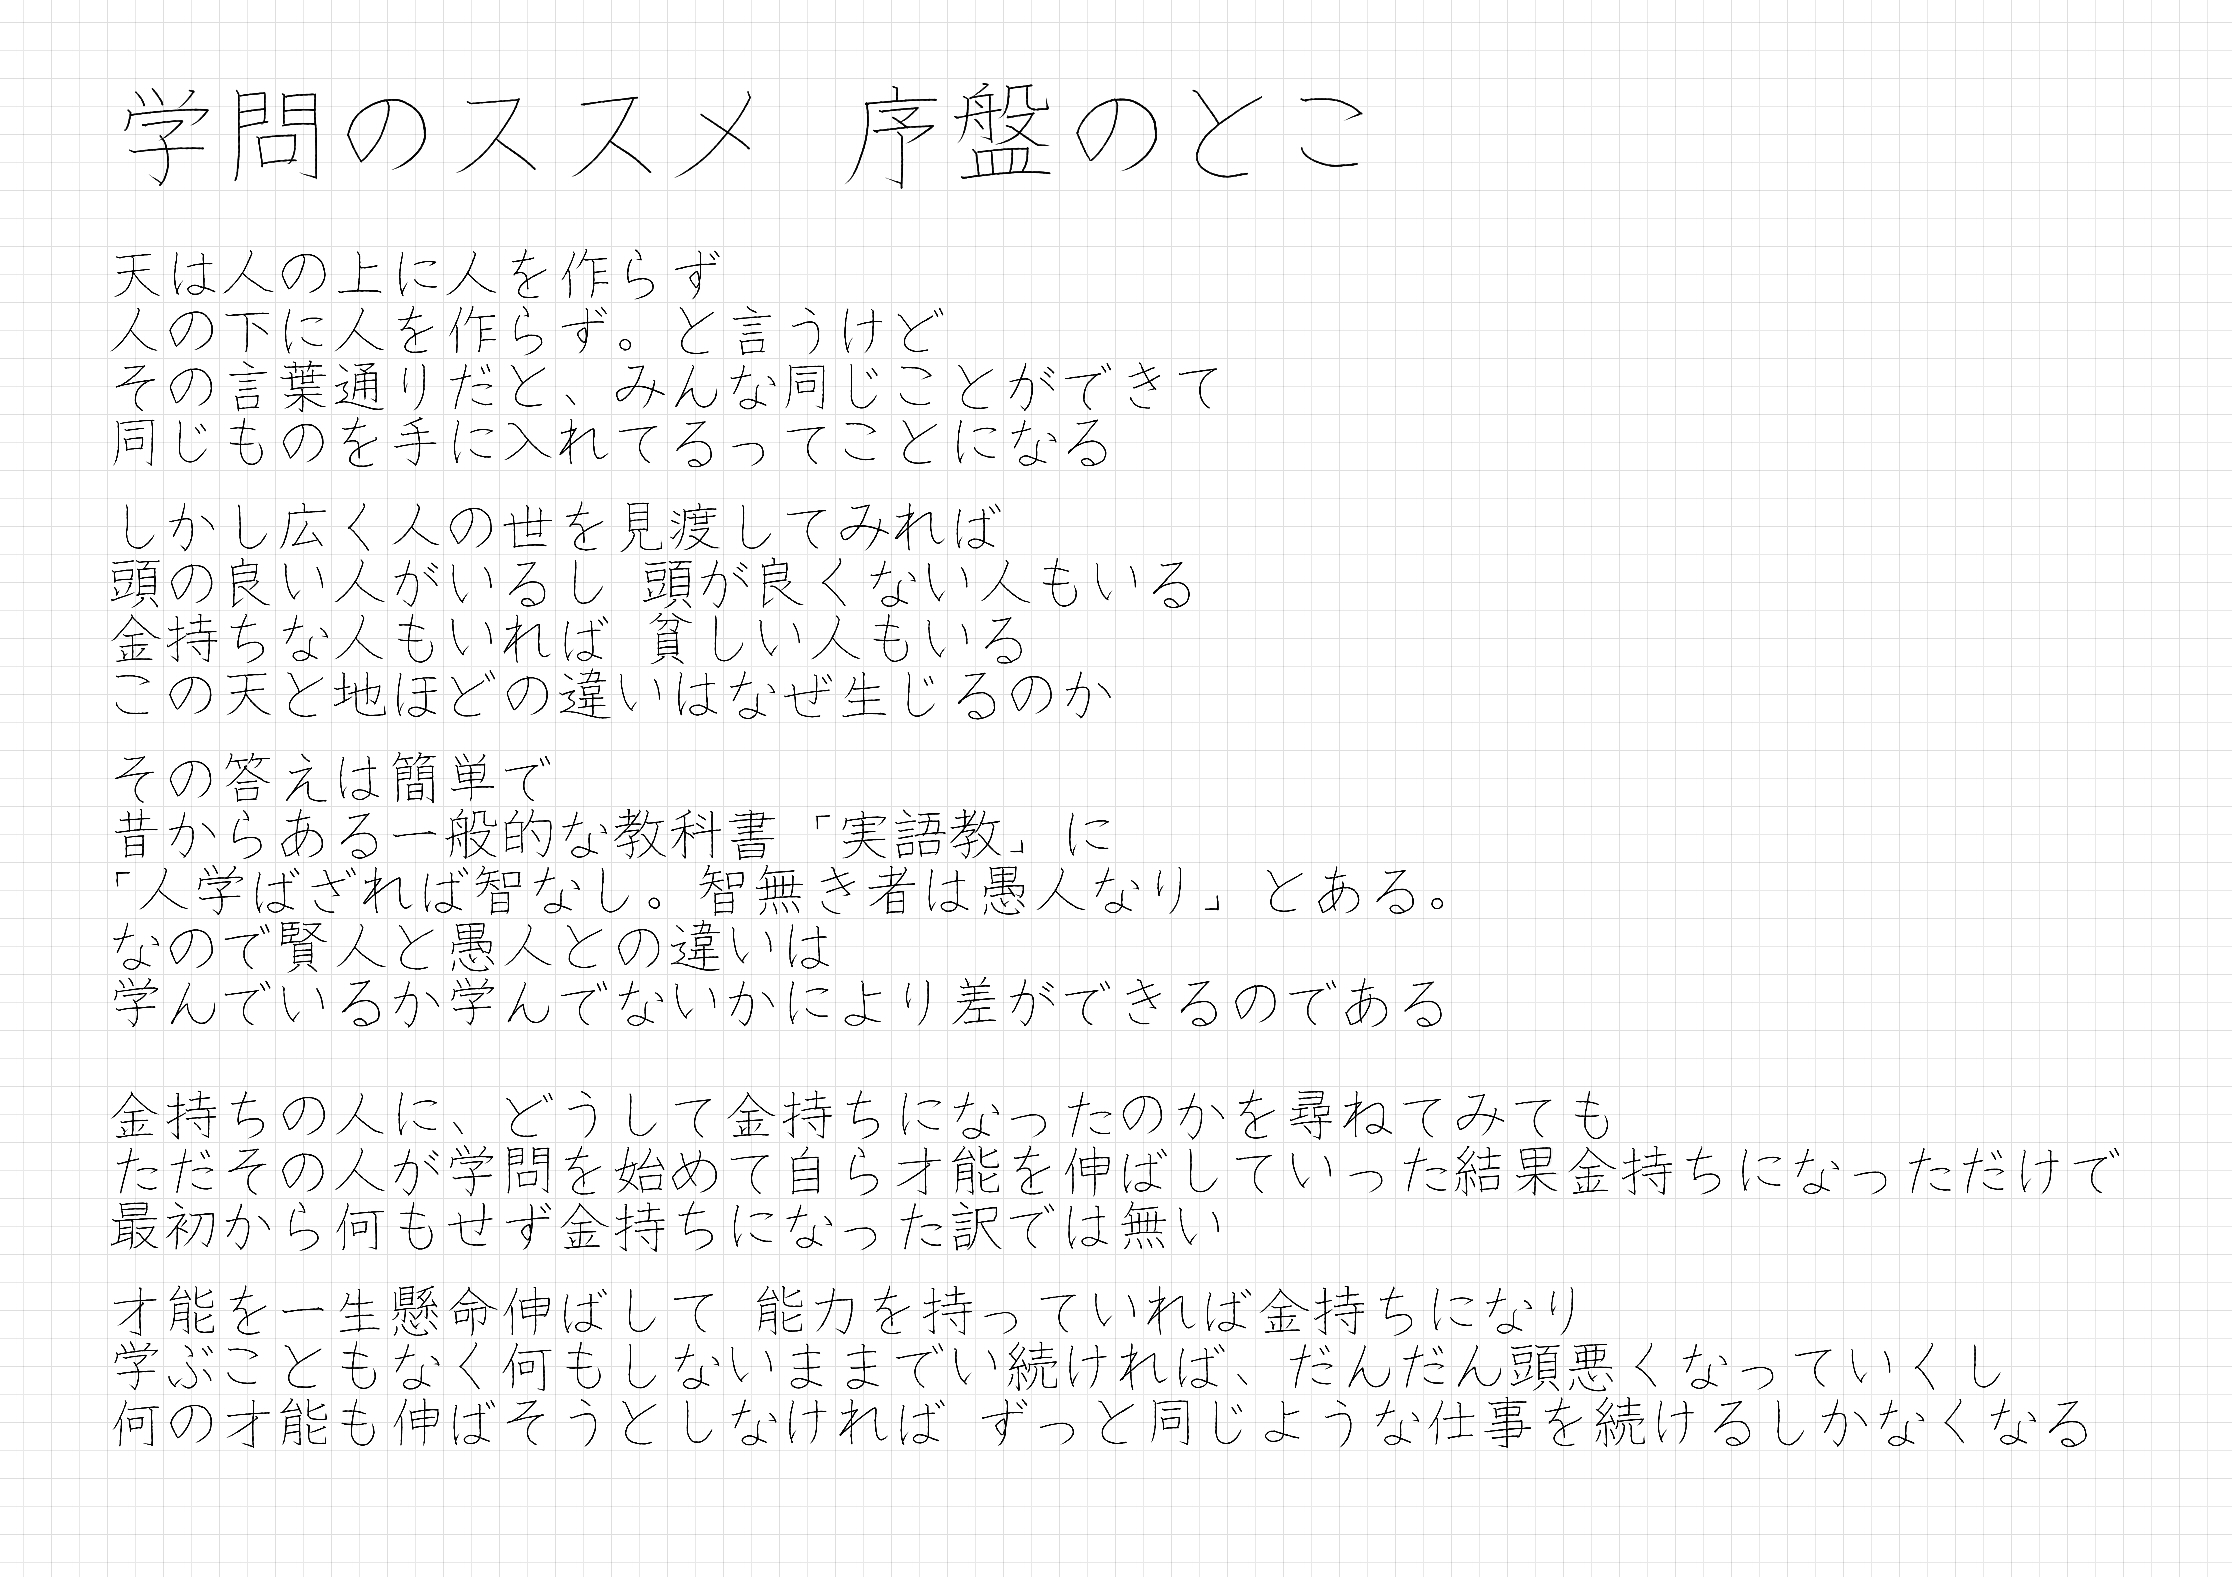 学問のススメ 序盤のとこ
天は人の上に人を作らず
人の下に人を作らず。と言うけど
その言葉通りだと、みんな同じことができて
同じものを手に入れてるってことになる
しかし広く人の世を見渡してみれば
頭の良い人がいるし 頭が良くない人もいる
金持ちな人もいれば 貧しい人もいる
この天と地ほどの違いはなぜ生じるのか
その答えは簡単で
昔からある一般的な教科書「実語教」に
「人学ばざれば智なし。智無き者は愚人なり」とある。
なので賢人と愚人との違いは
学んでいるか学んでないかにより差ができるのである
金持ちの人に、どうして金持ちになったのかを尋ねてみても
ただその人が学問を始めて自ら才能を伸ばしていった結果金持ちになっただけで
最初から何もせず金持ちになった訳では無い
才能を一生懸命伸ばして 能力を持っていれば金持ちになり
学ぶこともなく何もしないままでい続ければ、だんだん頭悪くなっていくし
何の才能も伸ばそうとしなければ ずっと同じような仕事を続けるしかなくなる